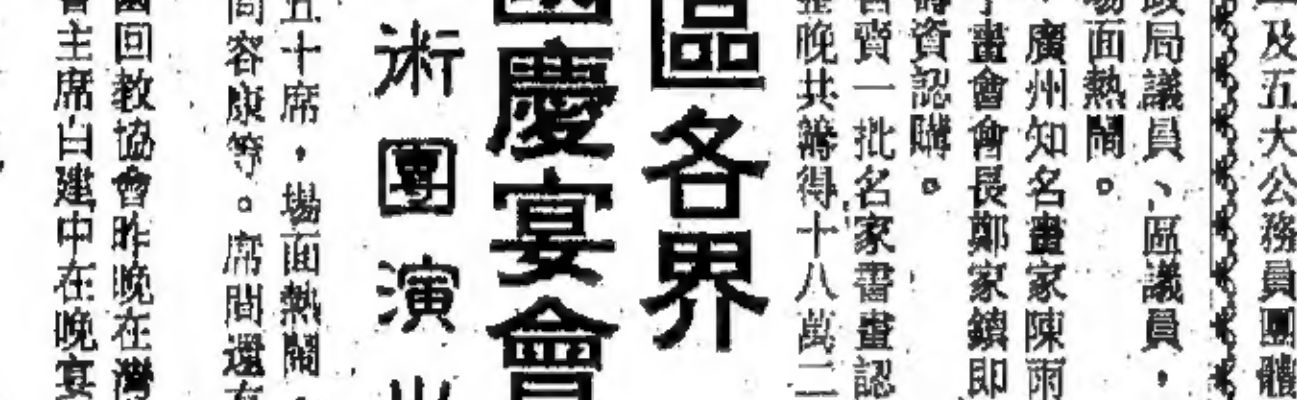 及五大公務員團體
局議員、區議員，
場面熱鬧。
廣州知名畫家陳雨
畫會會長鄭家鎮即
資認購。
賣一批名家書畫認
晚共籌得十八萬二
區各界
國慶宴會
術團演出
五十席，場面熱鬧
容康等。席間還有
回教協會昨晚在灣
主席白建中在晚宴